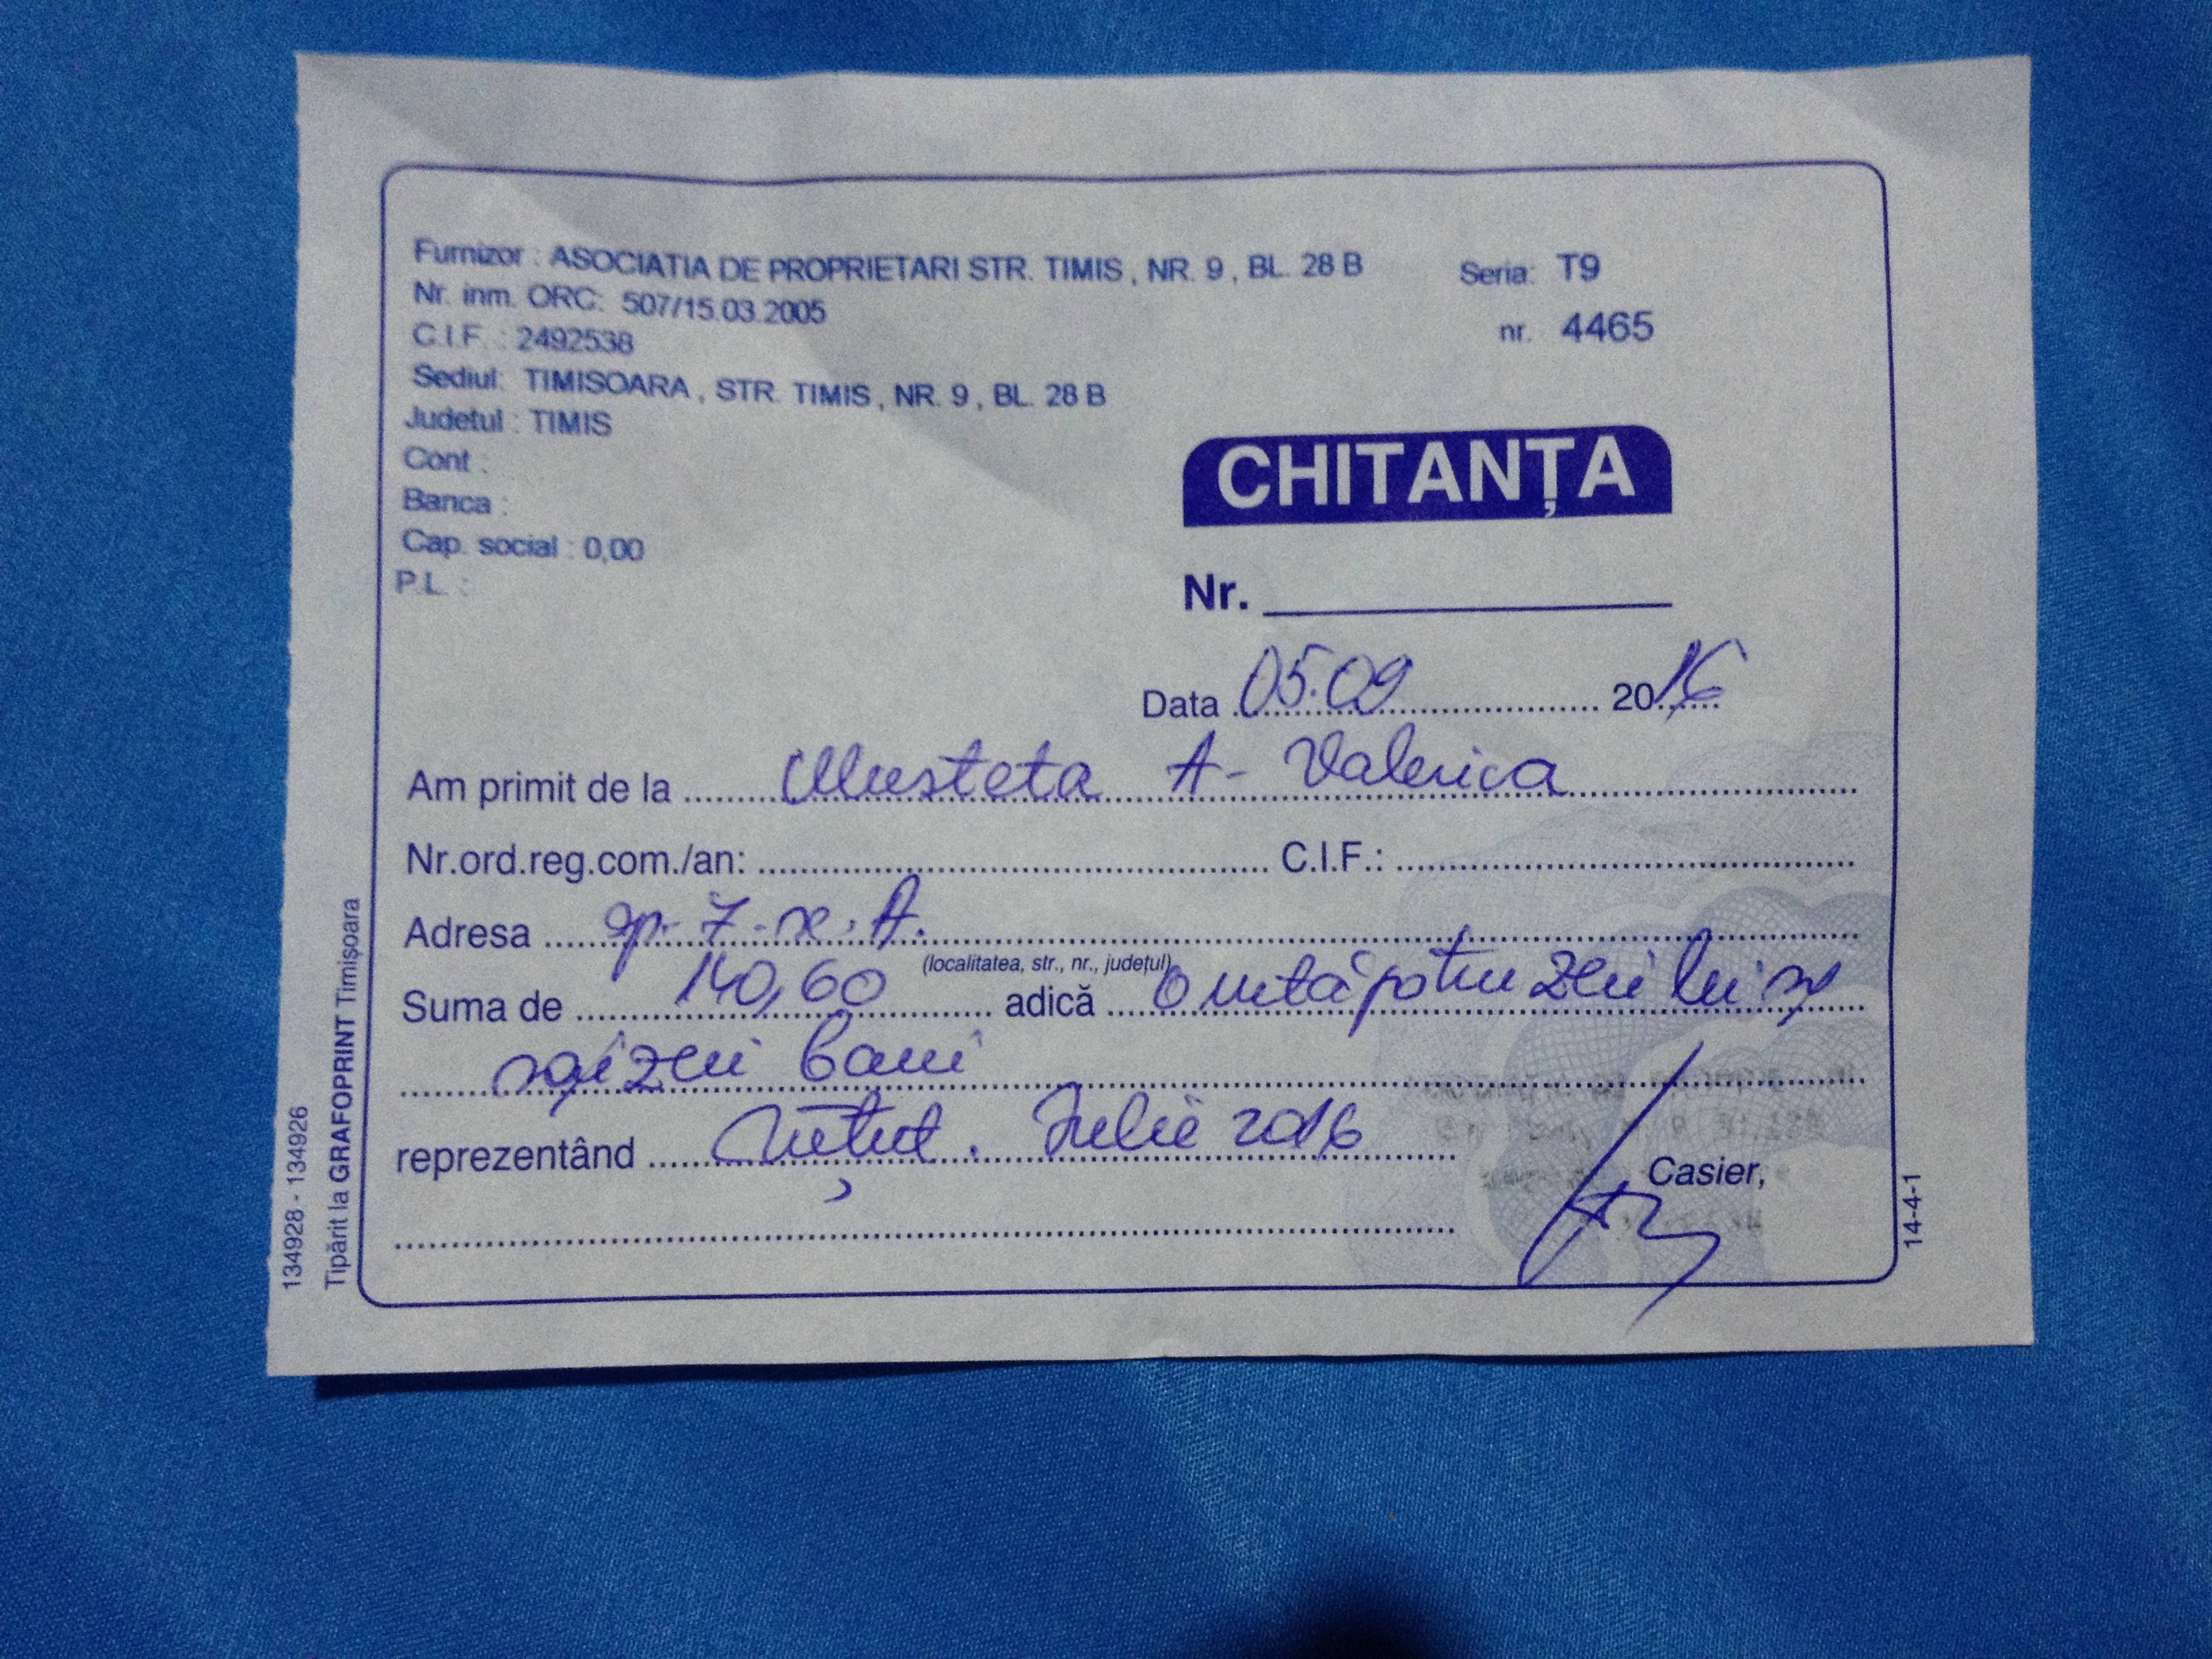 Furnizor : ASOCIATIA DE PROPRIETARI STR. TIMIS , NR. 9 , BL. 28 B Seria: T9
Nr. inm. ORC: 507/15.03.2005 nr. 4465
C.I.F. : 2492538
Sediul: TIMISOARA , STR. TIMIS , NR. 9 , BL. 28 B
Judetul : TIMIS
Cont :
Banca :
Cap. social : 0,00
P.L. :
CHITANȚA
Nr.
Data 05.09 2016
Am primit de la Musteta A- Valerica
Nr.ord.reg.com./an: C.I.F.:
Adresa ap. 7 A
(localitatea, str., nr., județul)
Suma de 140,60 adică o sută patru zeci lei și
șai zeci bani
reprezentând Iulie 2016
Casier,
14-4-1
Tipărit la GRAFOPRINT Timișoara
134928 - 134926